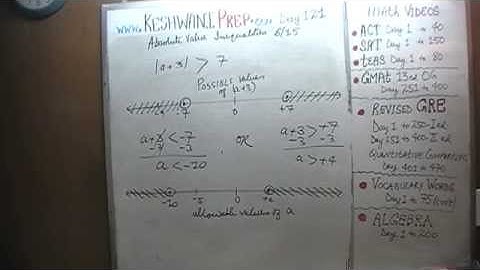 www.KESHWANIPREP.com Day 121
Absolute Value Inequalities 6/15
|a+3| > 7
POSSIBLE VALUES
OF (a+3)
-7 0 +7
a+3 < -7 OR a+3 > +7
-3 -3 -3 -3
a < -10 a > +4
-10 -5 0 +4
allowable values of a
MATH VIDEOS
• ACT DAY 1 to 40
• SAT DAY 1 to 150
• TEAS DAY 1 to 80
• GMAT 13 ed OG
DAY 251 to 400
• REVISED GRE
DAY 1 to 250 - I ed
DAY 251 to 400 - II ed
QUANTITATIVE COMPARISONS
DAY 401 to 470
• VOCABULARY WORDS
DAY 1 to 75
• ALGEBRA
DAY 1 to 200